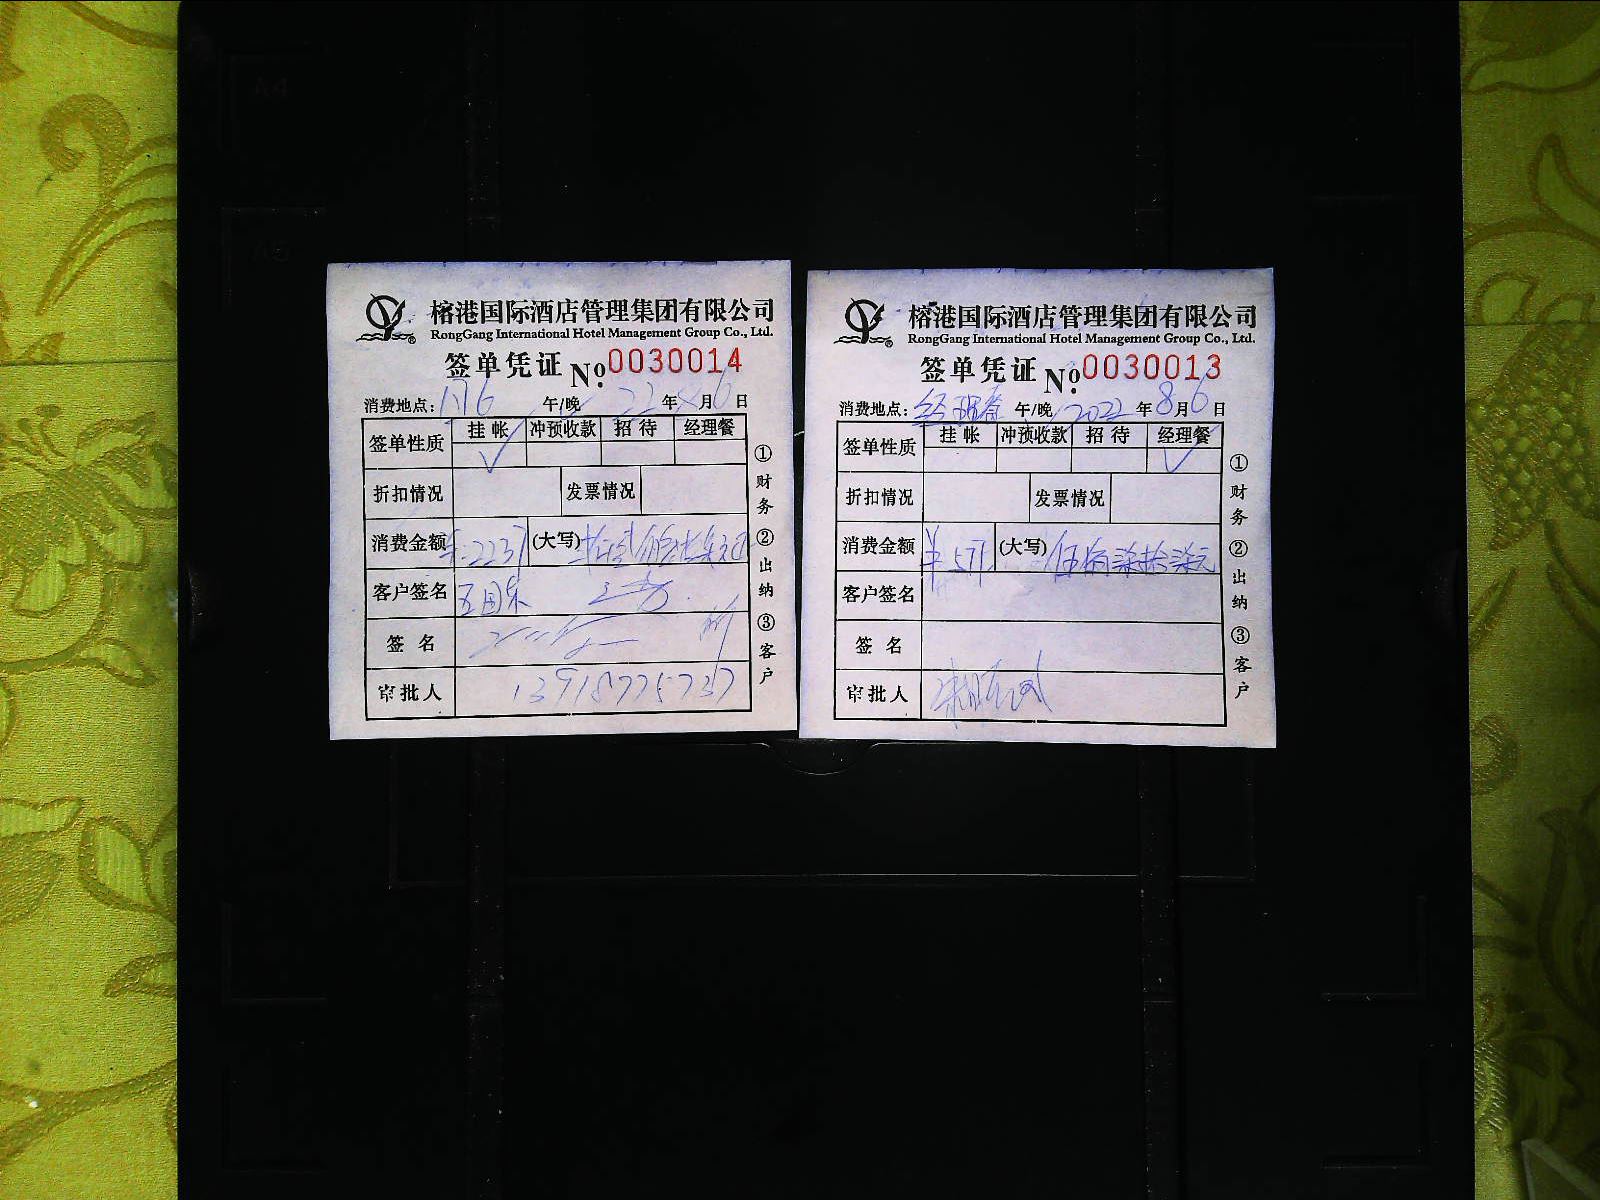 榕港国际酒店管理集团有限公司
RongGang International Hotel Management Group Co., Ltd.
签单凭证 No. 0030014
消费地点: 176 午/晚 22 年 8 月 6 日
签单性质 挂帐 冲预收款 招待 经理餐
折扣情况 发票情况
消费金额 ¥:2237 (大写)
客户签名
签名
审批人 13918775737
①财务 ②出纳 ③客户
榕港国际酒店管理集团有限公司
RongGang International Hotel Management Group Co., Ltd.
签单凭证 No. 0030013
消费地点: 经理餐 午/晚 2022 年 8 月 6 日
签单性质 挂帐 冲预收款 招待 经理餐
折扣情况 发票情况
消费金额 ¥577 (大写) 伍佰柒拾柒元
客户签名
签名
审批人
①财务 ②出纳 ③客户
A4
A5